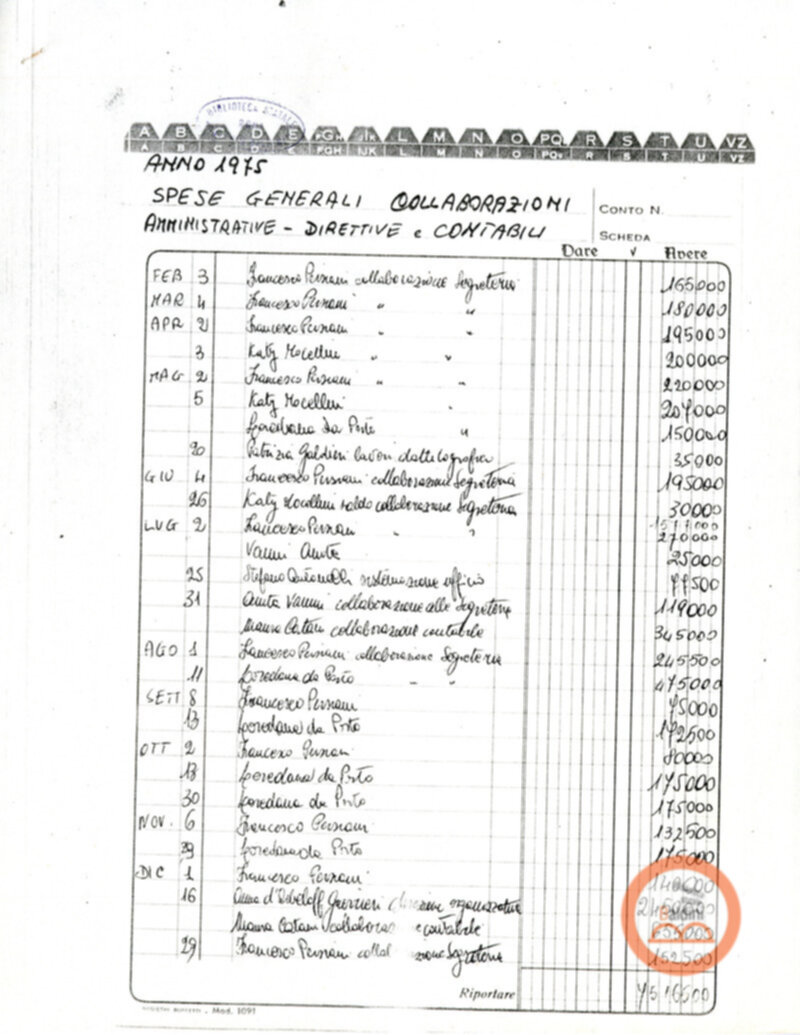 BIBLIOTECA STATALE
A B C D E FGH IJK L M N O PQ R S T U VZ
A B C D E FGH IJK L M N O PQ R S T U VZ
ANNO 1975
SPESE GENERALI COLLABORAZIONI
AMMINISTRATIVE - DIRETTIVE e CONTABILI
CONTO N.
SCHEDA
Dare v Avere
FEB 3 Francesco Persiani collaborazione Segreteria 165000
MAR 4 Francesco Persiani " " 180000
APR 2 Francesco Persiani " " 195000
3 Katy Mocellini " " 200000
MAG 2 Francesco Persiani " " 220000
5 Katy Mocellini " 207000
Loredana da Porto " 150000
20 Patrizia Galdieri lavori dattilografia 35000
GIU 4 Francesco Persiani collaborazione Segreteria 195000
26 Katy Mocellini saldo collaborazione Segreteria 30000
1577000
LUG 2 Francesco Persiani " " 270000
Vanni Anita 25000
25 Stefano Antonelli sistemazione ufficio 77500
31 Anita Vanni collaborazione alla Segreteria 119000
Maura Catani collaborazione contabile 345000
AGO 1 Francesco Persiani collaborazione Segreteria 245500
11 Loredana da Porto " " 475000
SETT 8 Francesco Persiani 75000
13 Loredana da Porto 172500
OTT 2 Francesco Persiani 80000
17 Loredana da Porto 175000
30 Loredana da Porto 175000
NOV. 6 Francesco Persiani 132500
29 Loredana da Porto 175000
DIC 1 Francesco Persiani 140000
16 Anna d'Obeloff Guerrieri organizzativa
Maura Catani contabile
29 Francesco Persiani Segreteria 152500
Riportare 7516500
Mod. 1091